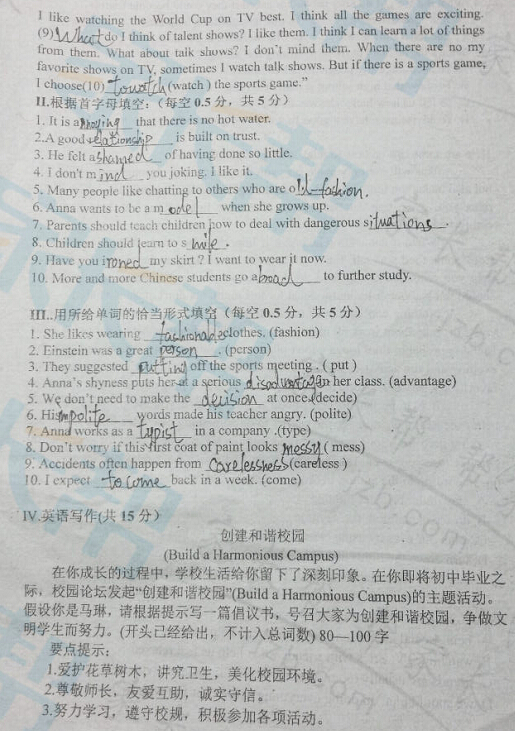 I like watching the World Cup on TV best. I think all the games are exciting.
(9)What do I think of talent shows? I like them. I think I can learn a lot of things
from them. What about talk shows? I don't mind them. When there are no my
favorite shows on TV, sometimes I watch talk shows. But if there is a sports game,
I choose(10) to watch (watch ) the sports game."
II.根据首字母填空：（每空 0.5 分，共 5 分）
1. It is annoying that there is no hot water.
2.A good relationship is built on trust.
3. He felt ashamed of having done so little.
4. I don't mind you joking. I like it.
5. Many people like chatting to others who are old-fashion.
6. Anna wants to be a model when she grows up.
7. Parents should teach children how to deal with dangerous situations.
8. Children should learn to smile.
9. Have you ironed my skirt ? I want to wear it now.
10. More and more Chinese students go aboard to further study.
III..用所给单词的恰当形式填空（每空 0.5 分，共 5 分）
1. She likes wearing fashionable clothes. (fashion)
2. Einstein was a great person. (person)
3. They suggested putting off the sports meeting . ( put )
4. Anna's shyness puts her at a serious disadvantage in her class. (advantage)
5. We don't need to make the decision at once.(decide)
6. His impolite words made his teacher angry. (polite)
7. Anna works as a typist in a company .(type)
8. Don't worry if this first coat of paint looks messy.( mess)
9. Accidents often happen from carelessness(careless )
10. I expect to come back in a week. (come)
IV.英语写作(共 15 分）
创建和谐校园
(Build a Harmonious Campus)
在你成长的过程中，学校生活给你留下了深刻印象。在你即将初中毕业之
际，校园论坛发起“创建和谐校园”(Build a Harmonious Campus)的主题活动。
假设你是马琳，请根据提示写一篇倡议书，号召大家为创建和谐校园，争做文
明学生而努力。(开头已经给出，不计入总词数) 80—100 字
要点提示：
1.爱护花草树木，讲究卫生，美化校园环境。
2.尊敬师长，友爱互助，诚实守信。
3.努力学习，遵守校规，积极参加各项活动。